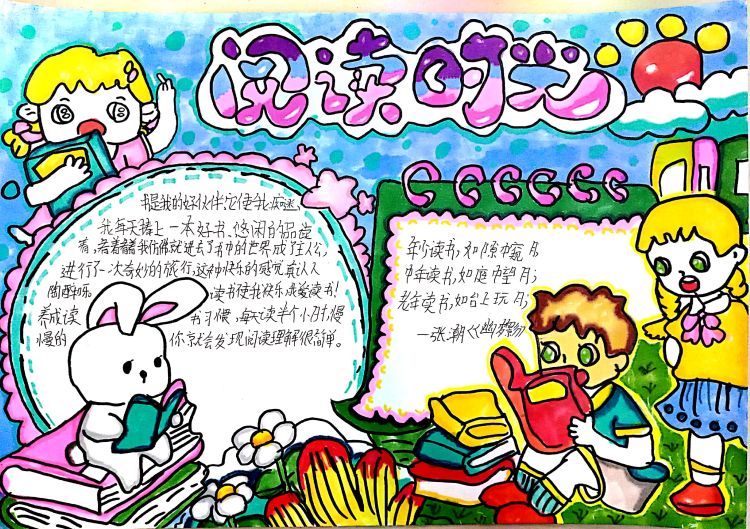 阅读时光
书是我的好伙伴,它使我痴迷
我每天捧上一本好书,悠闲的品读
着,看着看着我仿佛就进去了书中的世界成了主人公,
进行了一次奇妙的旅行,这种快乐的感觉真让人
陶醉呀 读书使我快乐,我爱读书!
养成读 书习惯,每天读半个小时,慢
慢的 你就会发现阅读理解很简单。
年少读书,如隙中窥月;
中年读书,如庭中望月;
老年读书,如台上玩月;
—张潮《幽梦影》